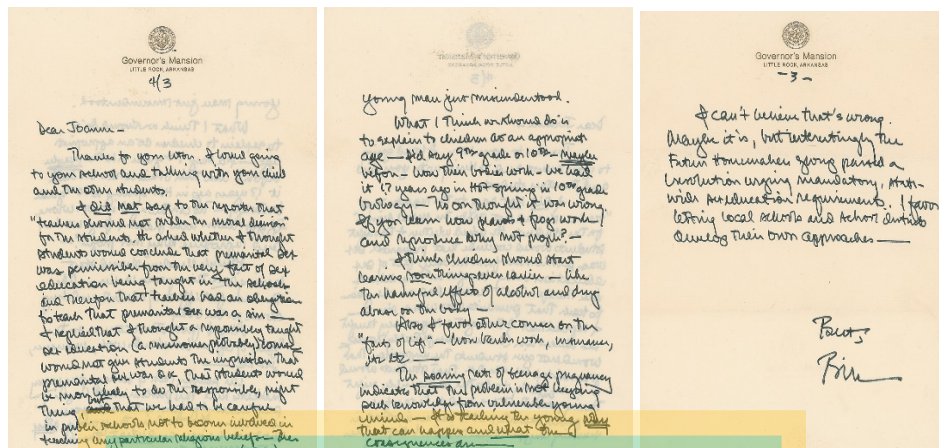 Governor's Mansion
LITTLE ROCK, ARKANSAS
4/3
Dear Joann —
Thanks for your letter. I loved going
to your school and talking with your child
and the other students.
I did not say to the reporter that
"teachers should not make the moral decision"
for the students. He asked whether I thought
students would conclude that premarital sex
was permissible from the very fact of sex
education being taught in the schools
and therefore that teachers had an obligation
to teach that premarital sex was a sin —
I replied that I thought a responsibly taught
sex education (a misnomer probably) course
would not give students the impression that
premarital sex was o.k. that students would
be more likely to do the responsible, right
thing, but that we had to be careful
in public schools not to become involved in
teaching any particular religious beliefs — The
young man just misunderstood.
What I think we should do is
to explain to children at an appropriate
age — I'd say 9th grade or 10th — maybe
before — how their bodies work — we had
it 17 years ago in Hot Springs in 10th grade
biology — No one thought it was wrong
If you learn how plants & frogs work
and reproduce why not people? —
I think children should start
learning some things even earlier — like
the harmful effects of alcohol and drug
abuse on the body —
Also I favor other courses on the
"facts of life" — how banks work, insurance,
etc etc —
The soaring rate of teenage pregnancy
indicates that the problem is not keeping
such knowledge from vulnerable young
minds — It is teaching the young why
that can happen and what the
consequences are —
Governor's Mansion
LITTLE ROCK, ARKANSAS
-3-
I can't believe that's wrong.
Maybe it is, but interestingly the
Future Homemakers group passed a
resolution urging mandatory, state-
wide sex education requirements. I favor
letting local schools and school districts
develop their own approaches —
Best,
Bill